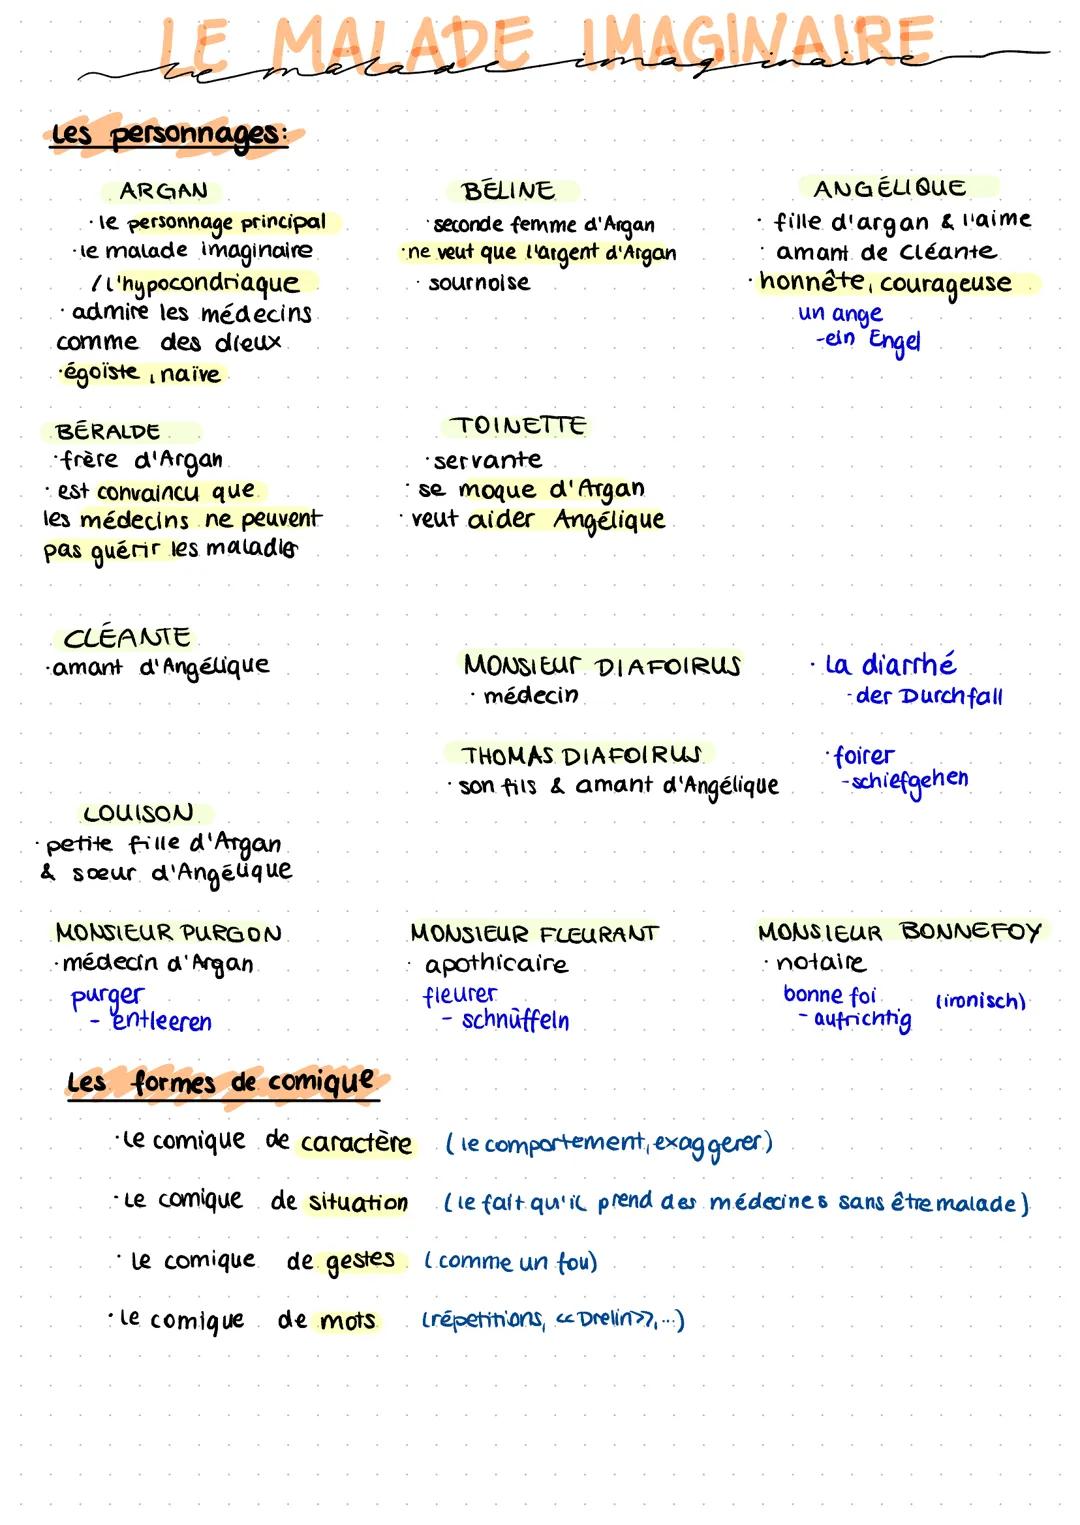 LE MALADE IMAGINAIRE
Le malade imaginaire
Les personnages:
ARGAN
· le personnage principal
· le malade imaginaire
/ l'hypocondriaque
· admire les médecins
comme des dieux
· égoïste, naïve
BÉLINE
· seconde femme d'Argan
· ne veut que l'argent d'Argan
· sournoise
ANGÉLIQUE
· fille d'argan & l'aime
· amant de Cléante
· honnête, courageuse
un ange
- ein Engel
BÉRALDE
· frère d'Argan
· est convaincu que
les médecins ne peuvent
pas guérir les maladies
TOINETTE
· servante
· se moque d'Argan
· veut aider Angélique
CLÉANTE
· amant d'Angélique
MONSIEUR DIAFOIRUS
· médecin
· La diarrhé
- der Durchfall
THOMAS DIAFOIRUS
· son fils & amant d'Angélique
· foirer
- schiefgehen
LOUISON
· petite fille d'Argan
& sœur d'Angélique
MONSIEUR PURGON
· médecin d'Argan
purger
- entleeren
MONSIEUR FLEURANT
· apothicaire
fleurer
- schnüffeln
MONSIEUR BONNEFOY
· notaire
bonne foi (ironisch)
- aufrichtig
Les formes de comique
· Le comique de caractère (le comportement, exaggerer)
· Le comique de situation (le fait qu'il prend des médecines sans être malade)
· Le comique de gestes (comme un fou)
· Le comique de mots (répetitions, <<Drelin>>,...)